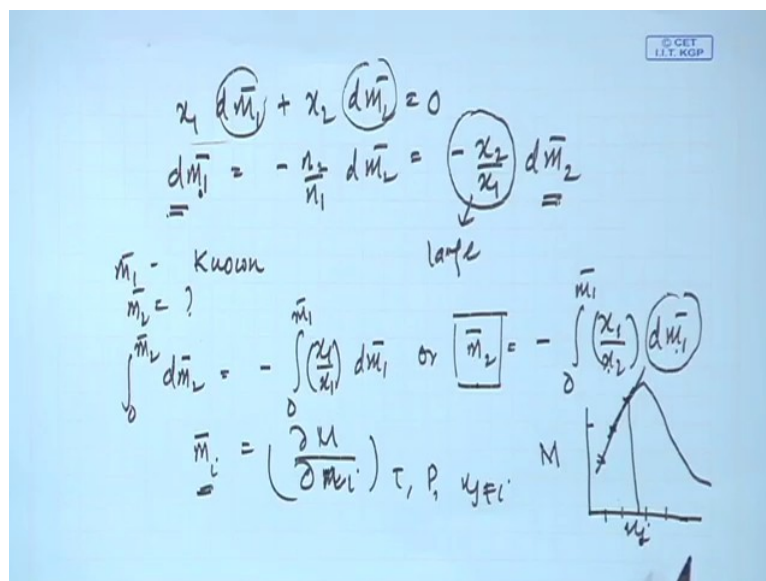 © CET
I.I.T. KGP
x₁ dm̄₁ + x₂ dm̄₂ = 0
dm̄₁ = - n₂/n₁ dm̄₂ = - x₂/x₁ dm̄₂
large
m̄₁ - Known
m̄₂ = ?
∫₀^m̄₂ dm̄₂ = - ∫₀^m̄₁ (x₁/x₁) dm̄₁ or m̄₂ = - ∫₀^m̄₁ (x₁/x₂) dm̄₁
m̄ᵢ = (∂M/∂nᵢ) T, P, nj≠i M
nj